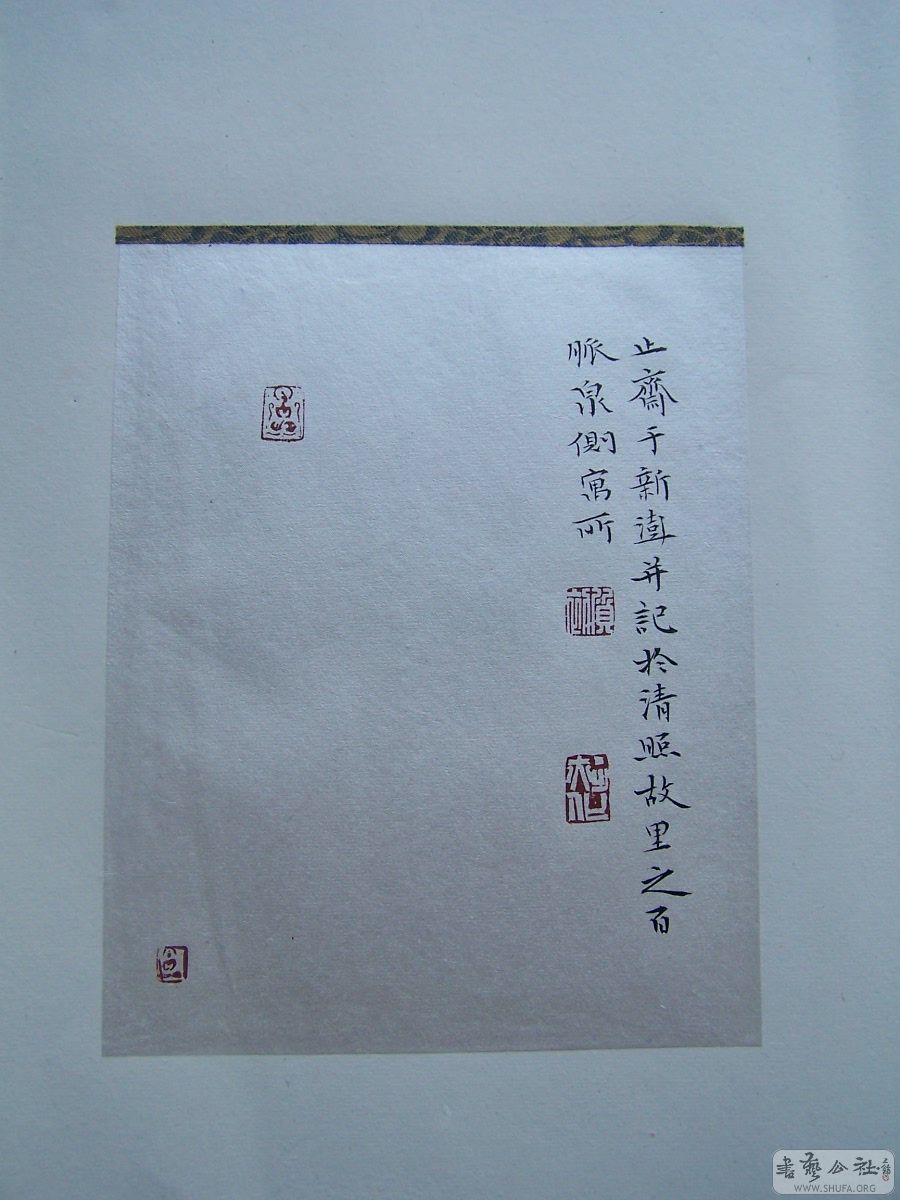 止齋于新澍并記於清照故里之百
脈泉側寓所
書藝公社
WWW.SHUFA.ORG